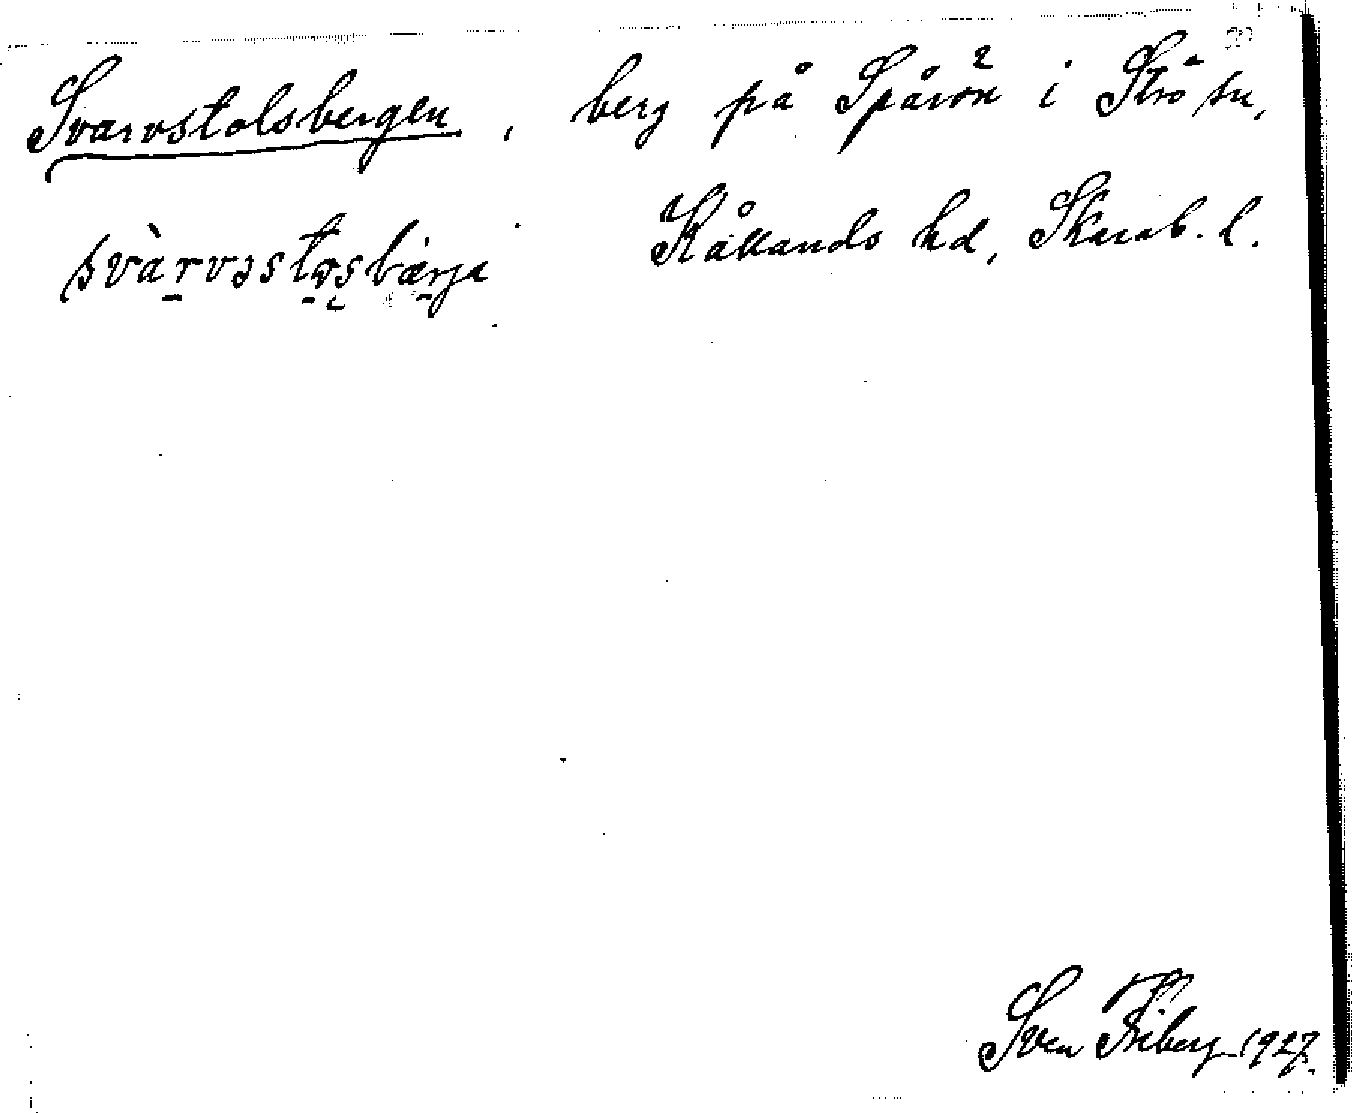 Svarvstolsbergen, berg på Spårön i Strö sn,
svàrvəstɷsbærja Kållands hd, Skarab. l.
Sven Friberg 1927.